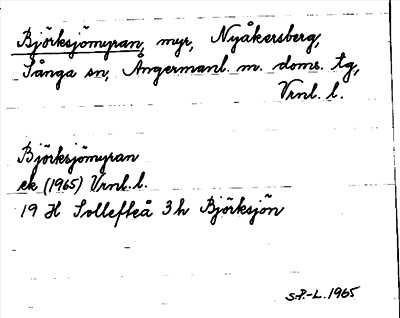 Björksjömyran, myr, Nyåkersberg,
Sånga sn, Ångermanl. m. doms. tg,
Vrnl. l.
Björksjömyran
ek (1965) Vrnl. l.
19 H Sollefteå 3 h Björksjön
S-P.-L. 1965